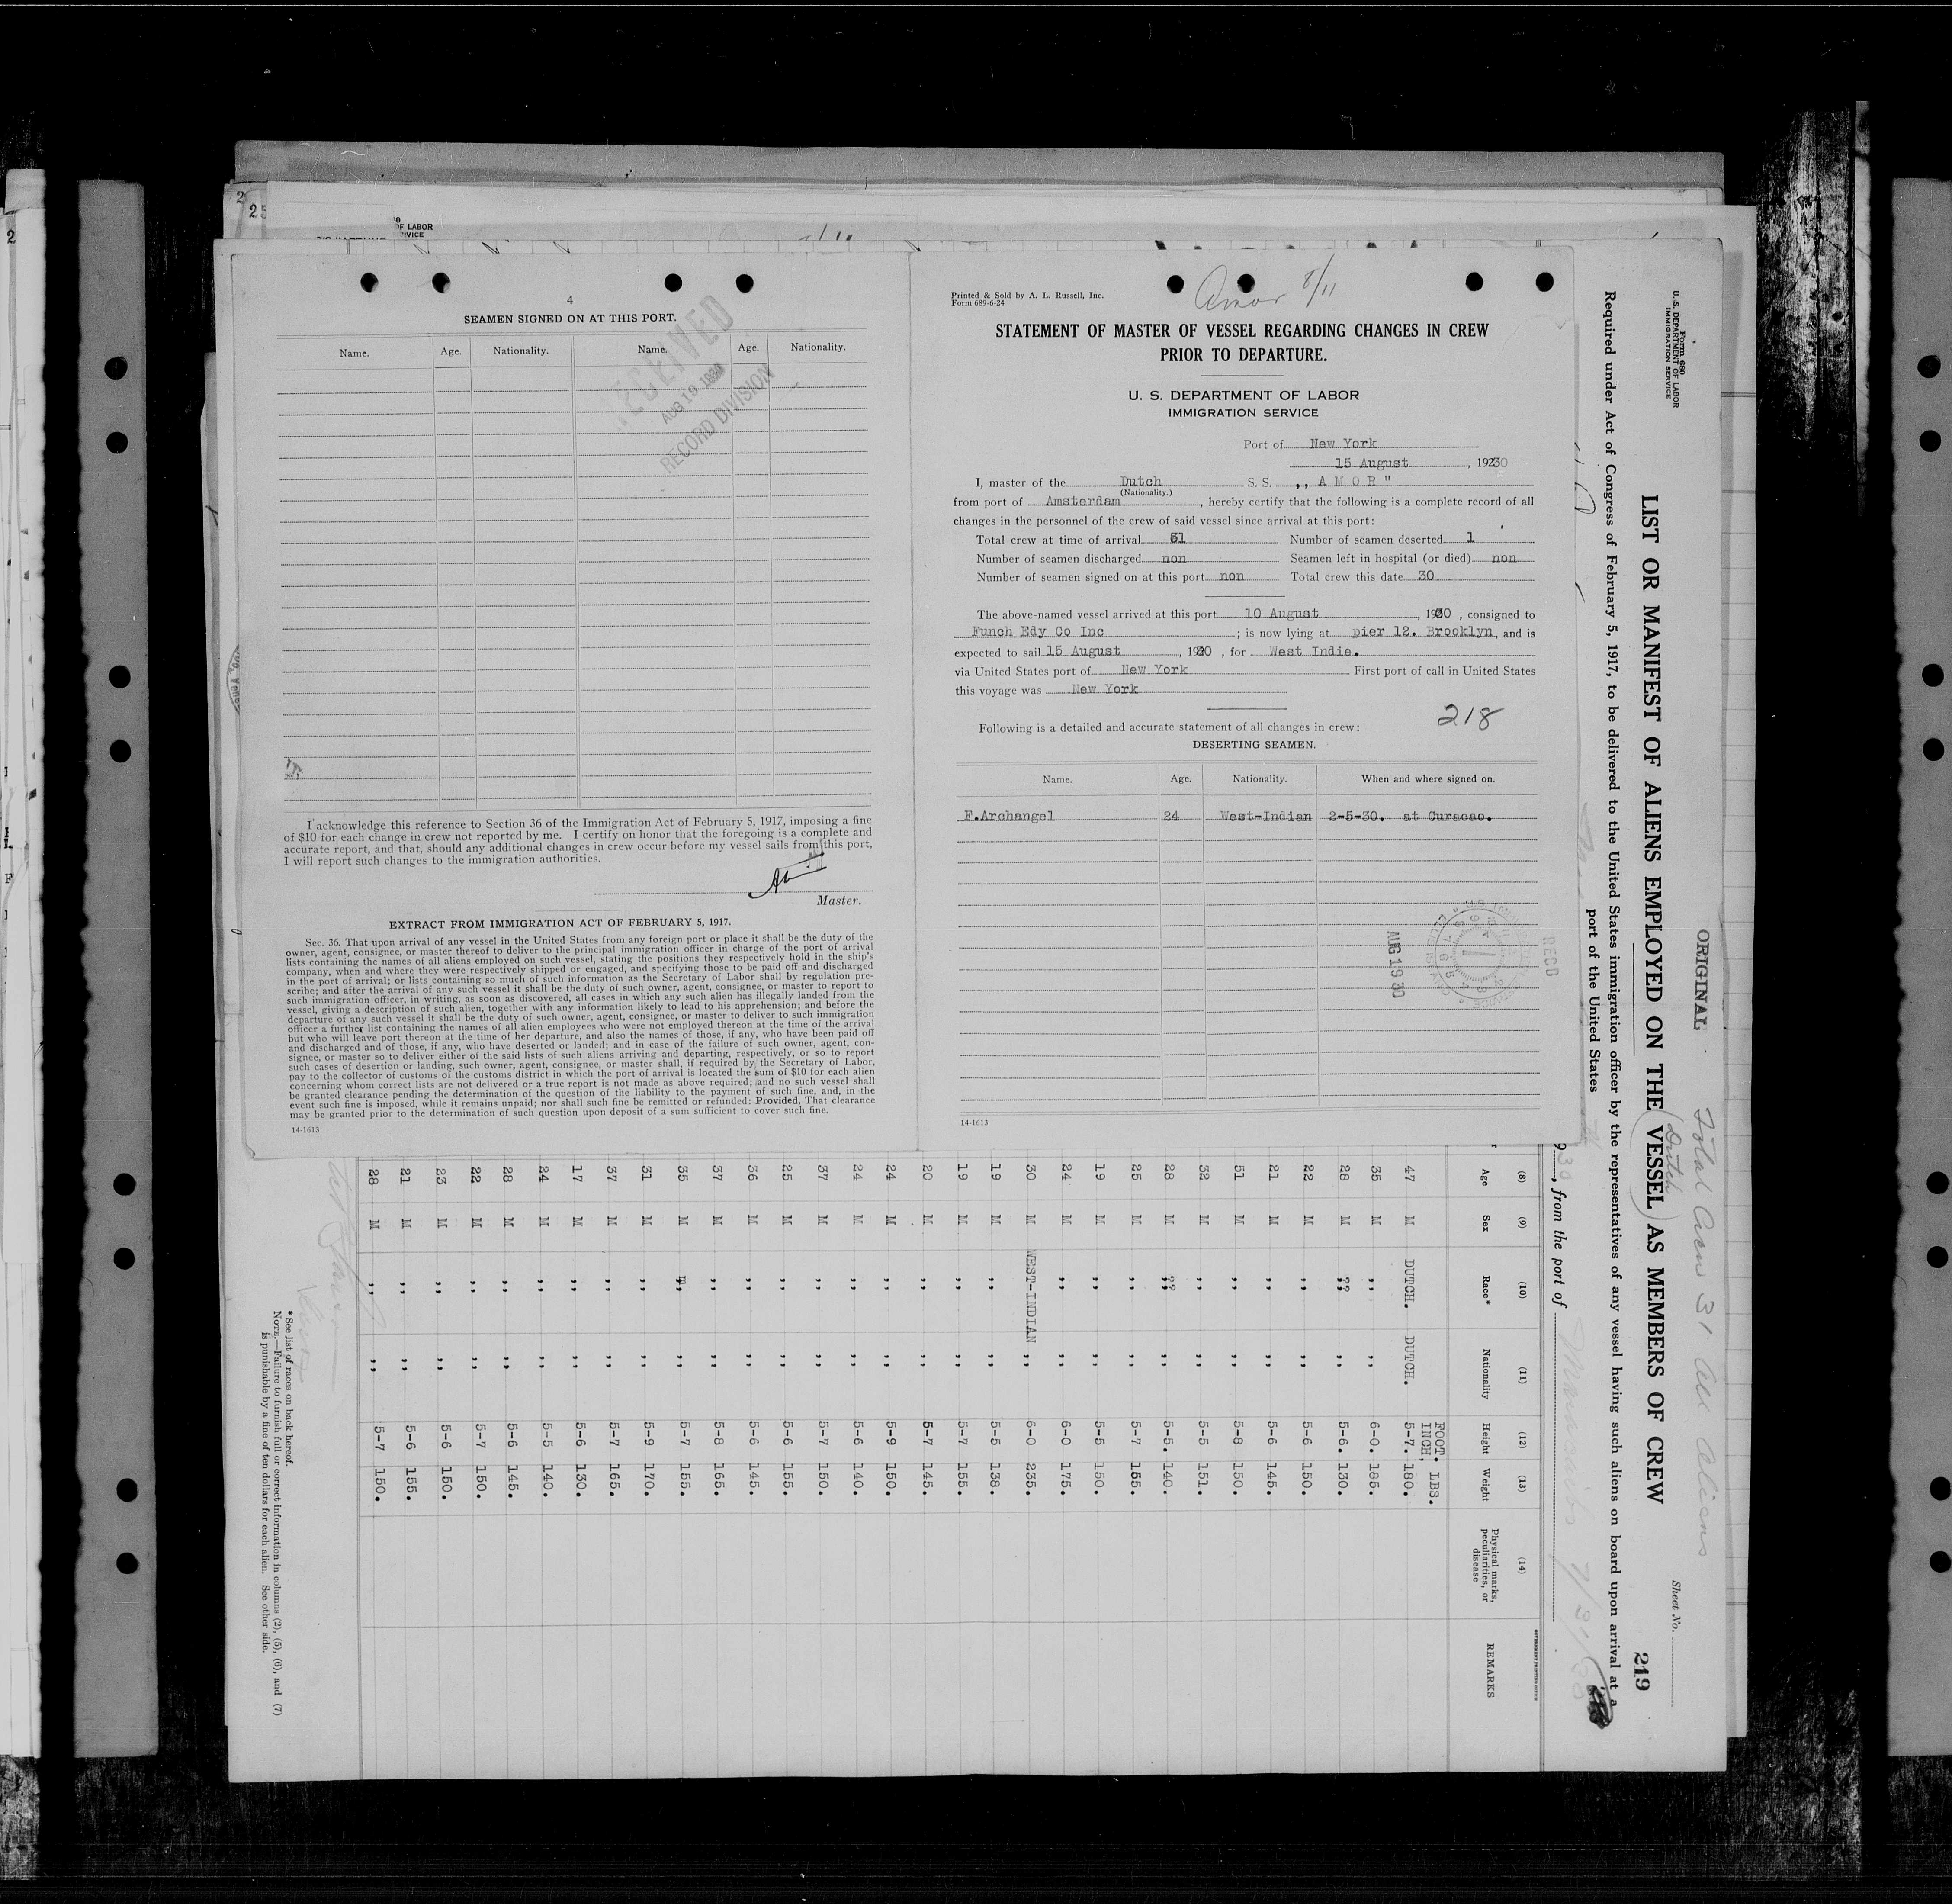 4
SEAMEN SIGNED ON AT THIS PORT.
Name. Age. Nationality. Name. Age. Nationality.
RECEIVED
AUG 19 1930
RECORD DIVISION
I acknowledge this reference to Section 36 of the Immigration Act of February 5, 1917, imposing a fine
of $10 for each change in crew not reported by me. I certify on honor that the foregoing is a complete and
accurate report, and that, should any additional changes in crew occur before my vessel sails from this port,
I will report such changes to the immigration authorities.
Master.
EXTRACT FROM IMMIGRATION ACT OF FEBRUARY 5, 1917.
Sec. 36. That upon arrival of any vessel in the United States from any foreign port or place it shall be the duty of the
owner, agent, consignee, or master thereof to deliver to the principal immigration officer in charge of the port of arrival
lists containing the names of all aliens employed on such vessel, stating the positions they respectively hold in the ship's
company, when and where they were respectively shipped or engaged, and specifying those to be paid off and discharged
in the port of arrival; or lists containing so much of such information as the Secretary of Labor shall by regulation pre-
scribe; and after the arrival of any such vessel it shall be the duty of such owner, agent, consignee, or master to report to
such immigration officer, in writing, as soon as discovered, all cases in which any such alien has illegally landed from the
vessel, giving a description of such alien, together with any information likely to lead to his apprehension; and before the
departure of any such vessel it shall be the duty of such owner, agent, consignee, or master to deliver to such immigration
officer a further list containing the names of all alien employees who were not employed thereon at the time of the arrival
but who will leave port thereon at the time of her departure, and also the names of those, if any, who have been paid off
and discharged and of those, if any, who have deserted or landed; and in case of the failure of such owner, agent, con-
signee, or master so to deliver either of the said lists of such aliens arriving and departing, respectively, or so to report
such cases of desertion or landing, such owner, agent, consignee, or master shall, if required by the Secretary of Labor,
pay to the collector of customs of the customs district in which the port of arrival is located the sum of $10 for each alien
concerning whom correct lists are not delivered or a true report is not made as above required; and no such vessel shall
be granted clearance pending the determination of the question of the liability to the payment of such fine, and, in the
event such fine is imposed, while it remains unpaid; nor shall such fine be remitted or refunded: Provided, That clearance
may be granted prior to the determination of such question upon deposit of a sum sufficient to cover such fine.
14-1613
Printed & Sold by A. L. Russell, Inc.
Form 689-6-24
Amor 8/11
STATEMENT OF MASTER OF VESSEL REGARDING CHANGES IN CREW
PRIOR TO DEPARTURE.
U. S. DEPARTMENT OF LABOR
IMMIGRATION SERVICE
Port of New York
15 August, 1930
I, master of the Dutch S. S. ,, A M O R "
(Nationality.)
from port of Amsterdam, hereby certify that the following is a complete record of all
changes in the personnel of the crew of said vessel since arrival at this port:
Total crew at time of arrival 31 Number of seamen deserted 1
Number of seamen discharged non Seamen left in hospital (or died) non
Number of seamen signed on at this port non Total crew this date 30
The above-named vessel arrived at this port 10 August, 1930, consigned to
Funch Edy Co Inc; is now lying at pier 12. Brooklyn, and is
expected to sail 15 August, 1930, for West Indie.
via United States port of New York First port of call in United States
this voyage was New York
218
Following is a detailed and accurate statement of all changes in crew:
DESERTING SEAMEN.
Name. Age. Nationality. When and where signed on.
F.Archangel 24 West-Indian 2-5-30. at Curacao.
AUG 19 30
RECD
14-1613
Form 680
U. S. DEPARTMENT OF LABOR
IMMIGRATION SERVICE
ORIGINAL
Total Crew 31 All Aliens
Sheet No.
219
(Dutch
LIST OR MANIFEST OF ALIENS EMPLOYED ON THE VESSEL AS MEMBERS OF CREW
Required under Act of Congress of February 5, 1917, to be delivered to the United States immigration officer by the representatives of any vessel having such aliens on board upon arrival at a
port of the United States
, from the port of Maracaibo 7/31/30
(8) (9) (10) (11) (12) (13) (14)
Age Sex Race* Nationality Height Weight Physical marks, peculiarities, or disease REMARKS
FOOT. INCH, LBS.
47 M DUTCH. DUTCH. 5-7. 180.
35 M ,, ,, 6-0. 185.
28 M ,, ,, 5-6. 130.
22 M ,, ,, 5-6 150.
21 M ,, ,, 5-6 145.
51 M ,, ,, 5-8 150.
32 M ,, ,, 5-5 151.
28 M ,, ,, 5-5. 140.
25 M ,, ,, 5-7 155.
19 M ,, ,, 5-5 150.
24 M ,, ,, 6-0 175.
30 M WEST-INDIAN ,, 6-0 235.
19 M ,, ,, 5-5 138.
19 M ,, ,, 5-7 155.
20 M ,, ,, 5-7 145.
24 M ,, ,, 5-9 150.
24 M ,, ,, 5-6 140.
37 M ,, ,, 5-7 150.
25 M ,, ,, 5-6 155.
36 M ,, ,, 5-6 145.
37 M ,, ,, 5-8 165.
35 M ,, ,, 5-7 155.
31 M ,, ,, 5-9 170.
37 M ,, ,, 5-7 165.
17 M ,, ,, 5-6 130.
24 M ,, ,, 5-5 140.
28 M ,, ,, 5-6 145.
22 M ,, ,, 5-7 150.
23 M ,, ,, 5-6 150.
21 M ,, ,, 5-6 155.
28 M ,, ,, 5-7 150.
*See list of races on back hereof.
NOTE.—Failure to furnish full or correct information in columns (2), (5), (6), and (7)
is punishable by a fine of ten dollars for each alien. See other side.